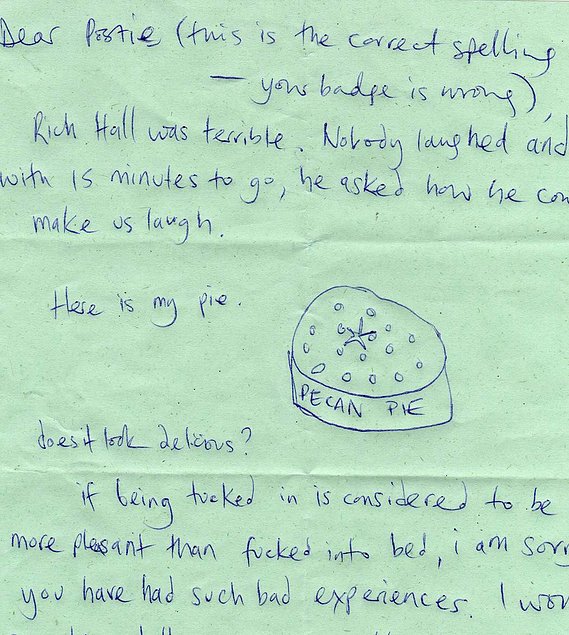 Dear Postie (this is the correct spelling
— your badge is wrong),
Rich Hall was terrible. Nobody laughed and
with 15 minutes to go, he asked how he cou
make us laugh.
Here is my pie.
PECAN PIE
does it look delicious?
if being tucked in is considered to be
more pleasant than fucked into bed, i am sorry
you have had such bad experiences. I won